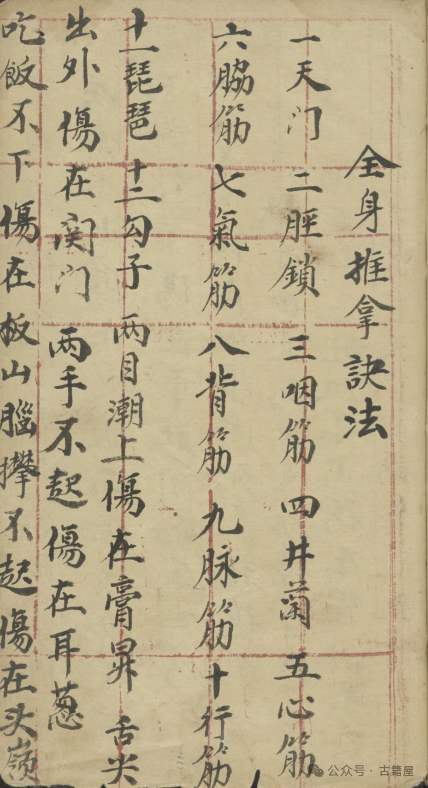 全身推拿訣法
一天门 二脛鎖 三咽筋 四井蘭 五心筋
六脇筋 七氣筋 八背筋 九脉筋 十行筋
十一琵琶 十二勾子 两目潮上傷在膏昇 舌尖
出外傷在関门 两手不起傷在耳葱
吃飯不下傷在板山腦攆不起傷在头嶺
公众号·古籍屋